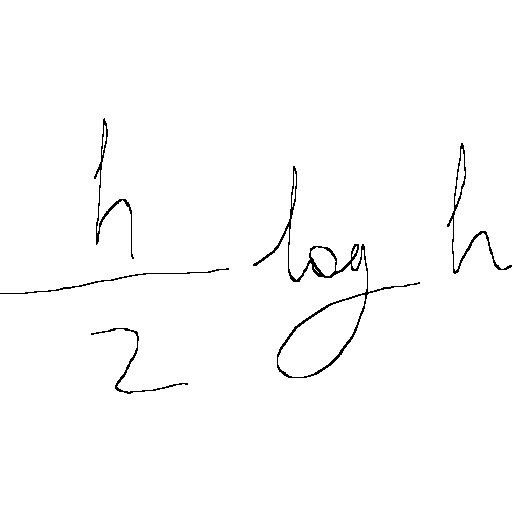 \frac{h}{2} \log h